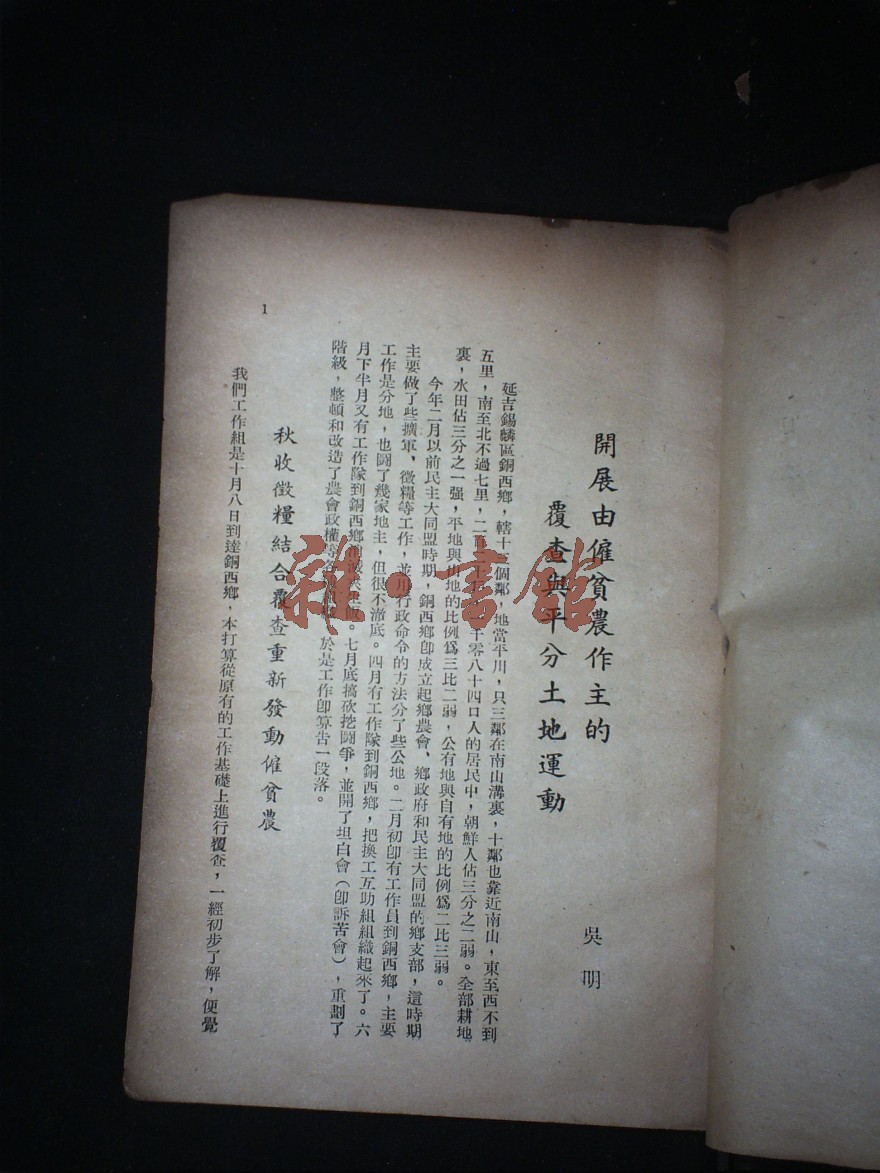 開展由僱貧農作主的
覆查與平分土地運動
吳明
延吉錫麟區銅西鄉，轄十 個鄰 地當平川，只三鄰在南山溝裏，十鄰也靠近南山，東至西不到
五里，南至北不過七里，二百 千零八十四口人的居民中，朝鮮人佔三分之二弱。全部耕地
裏，水田佔三分之一强，平地與山地的比例爲三比二弱，公有地與自有地的比例爲二比三弱。
今年二月以前民主大同盟時期，銅西鄉卽成立起鄉農會、鄉政府和民主大同盟的鄉支部，這時期
主要做了些擴軍，徵糧等工作，並用行政命令的方法分了些公地。二月初卽有工作員到銅西鄉，主要
工作是分地，也鬪了幾家地主，但很不澈底。四月有工作隊到銅西鄉，把換工互助組組織起來了。六
月下半月又有工作隊到銅西鄉 。七月底搞砍挖鬪爭，並開了坦白會（卽訴苦會），重劃了
階級，整頓和改造了農會政權等 於是工作卽算告一段落。
秋收徵糧結合覆查重新發動僱貧農
我們工作組是十月八日到達銅西鄉，本打算從原有的工作基礎上進行覆查，一經初步了解，便覺
1
雜·書館